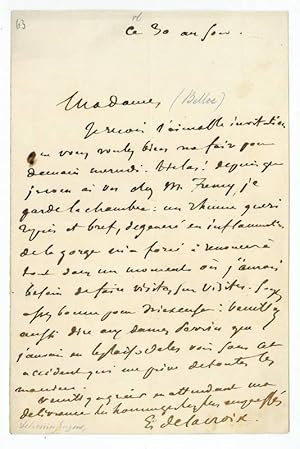 63
ce 30 
Madame, (Belloc)
Je reçois l'aimable invitation
que vous voulez bien me faire pour
demain mercredi. Hélas! depuis que
je vous ai vue chez M. je
garde la chambre: un rhume
et bref, dégénéré en inflammation
de la gorge m'a forcé à renoncer à
tout dans un moment où j'aurais
besoin de faire visites sur visites. Soyez
assez bonne pour m'excuser: veuillez
aussi dire aux dames que
j'aurais eu le plaisir de les voir sans cet
accident qui me prive de toutes les

Veuillez agréer en attendant ma
délivrance les hommages les plus empressés
E. Delacroix.